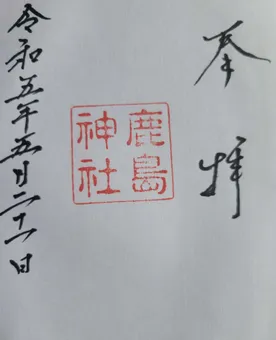 奉拝
鹿島
神社
令和五年五月二十一日